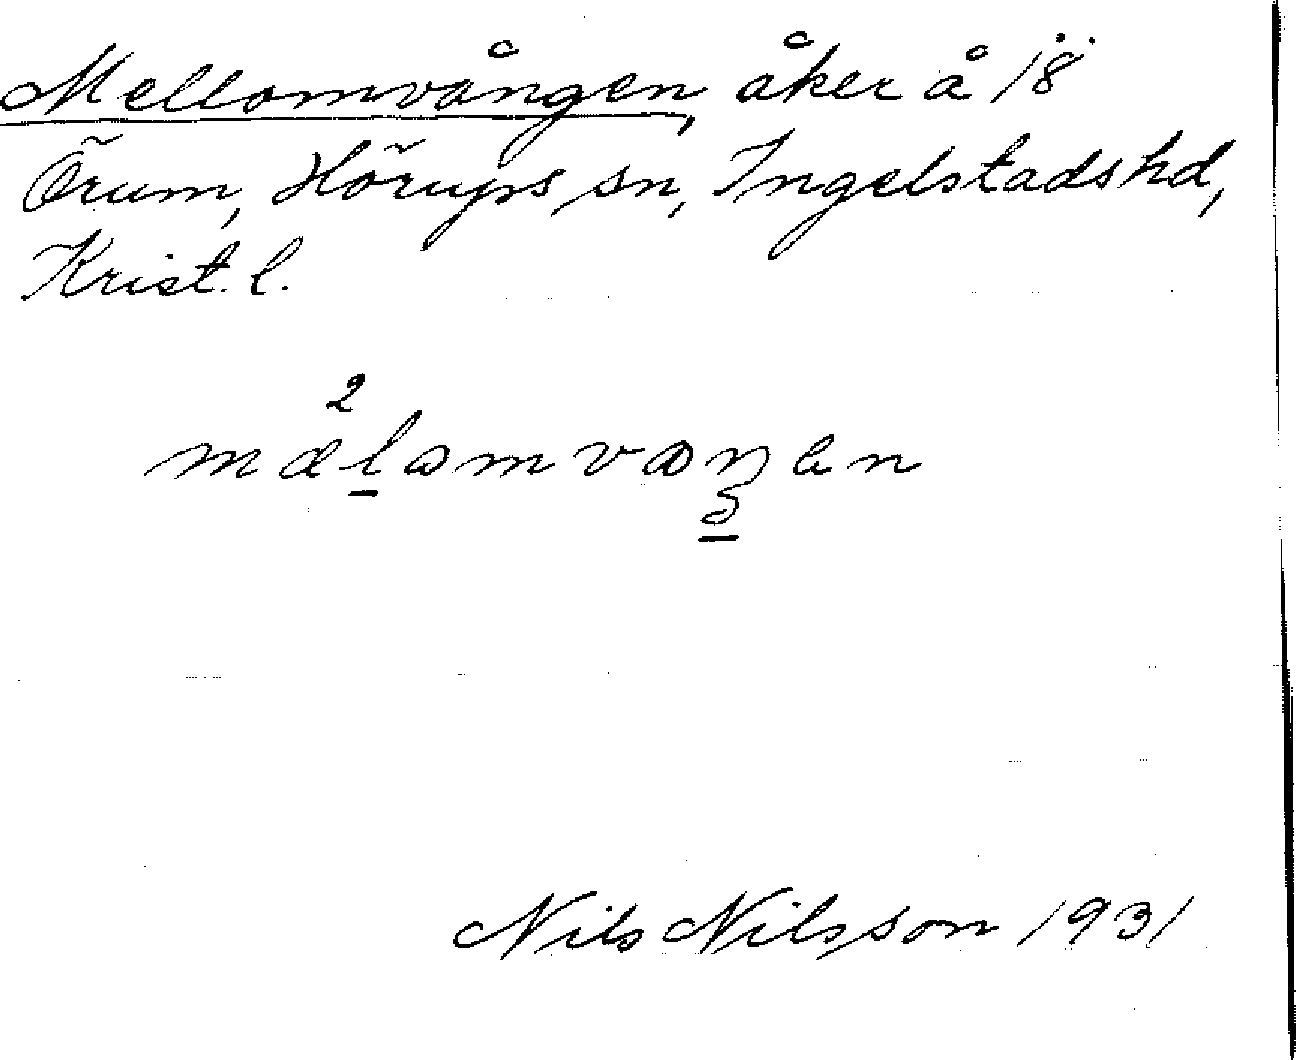 Mellomvången, åker å 18
Örum, Hörups sn, Ingelstads hd,
Krist. l.
Nils Nilsson 1931